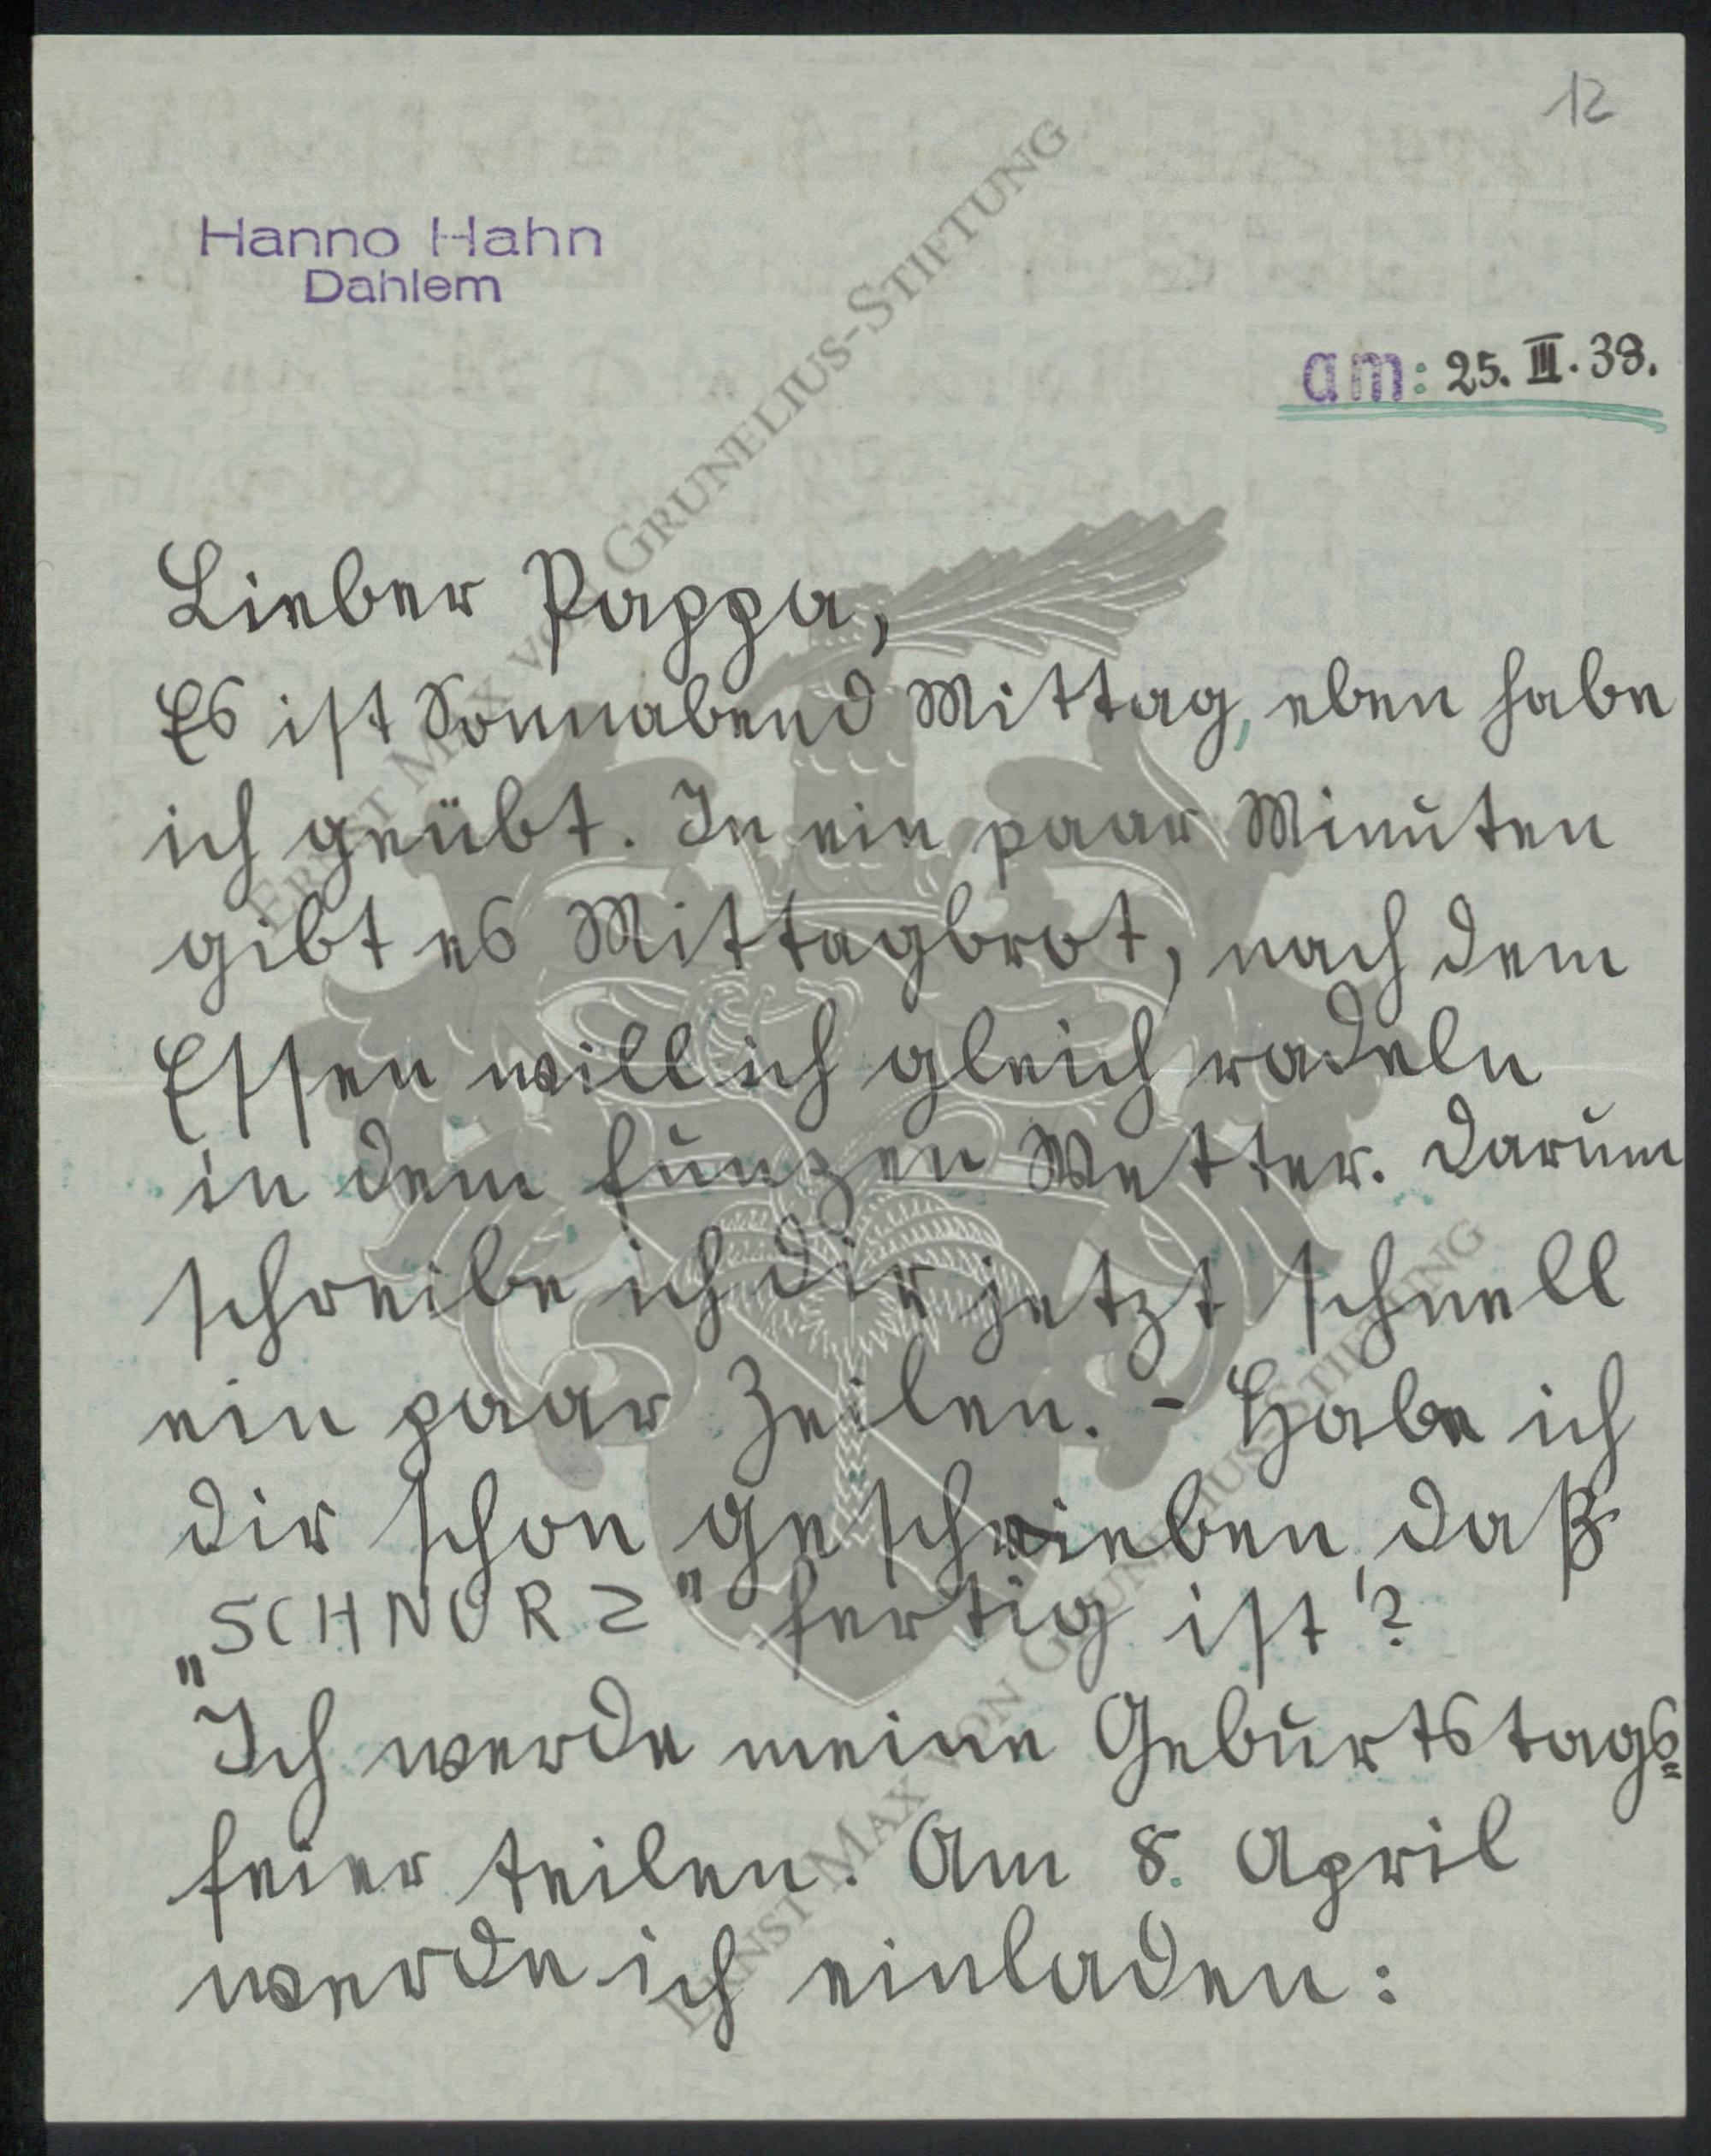 12
Hanno Hahn
Dahlem
am: 25. III. 39.
Lieber Pappa,
Es ist Sonnabend Mittag, eben habe
ich geübt. In ein paar Minuten
gibt es Mittagbrot, nach dem
Essen will ich gleich radeln
in dem funzen Wetter. Darum
schreibe ich dir jetzt schnell
ein paar Zeilen. - Habe ich
dir schon geschrieben, daß
„SCHNORZ" fertig ist?
Ich werde meine Geburtstags=
feier teilen. Am 8. April
werde ich einladen:
ERNST MAX VON GRUNELIUS-STIFTUNG
ERNST MAX VON GRUNELIUS-STIFTUNG